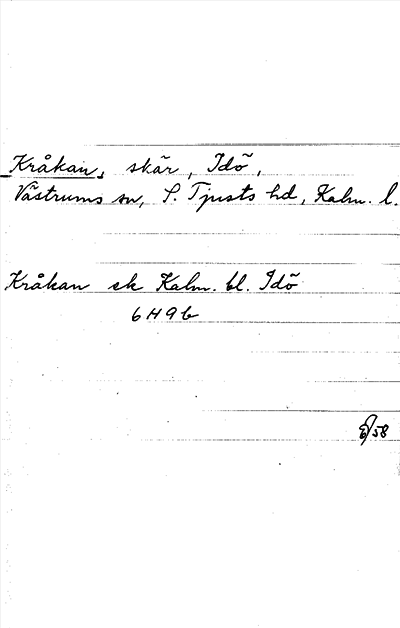 Kråkan, skär, Idö,
Västrums sn, S. Tjusts hd, Kalm. l.
Kråkan sk Kalm. bl. Idö
6H9b
58